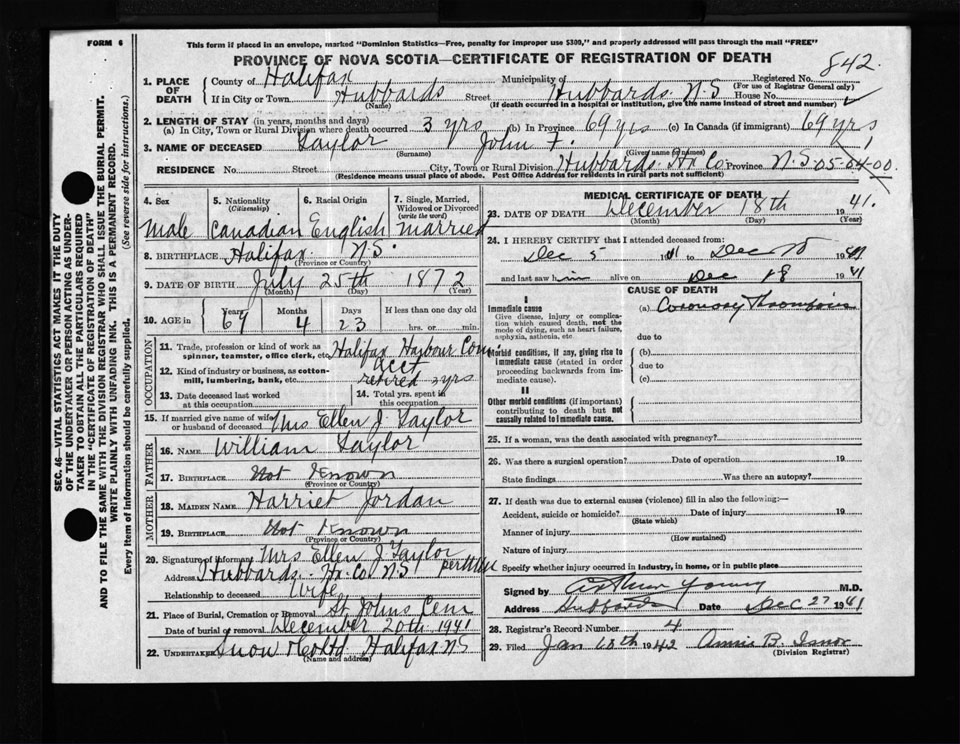 FORM 6
This form if placed in an envelope, marked "Dominion Statistics—Free, penalty for improper use $300," and properly addressed will pass through the mail "FREE"
PROVINCE OF NOVA SCOTIA—CERTIFICATE OF REGISTRATION OF DEATH
842.
1. PLACE OF DEATH County of Halifax Municipality of Registered No.
(For use of Registrar General only)
If in City or Town Hubbards Street Hubbards N.S House No.
(Name) (If death occurred in a hospital or institution, give the name instead of street and number)
2. LENGTH OF STAY (in years, months and days)
(a) In City, Town or Rural Division where death occurred 3 yrs (b) In Province 69 yrs (c) In Canada (if immigrant) 69 yrs
3. NAME OF DECEASED Taylor John F.
(Surname) (Given name or names)
RESIDENCE No. Street City, Town or Rural Division Hubbards Hx Co. Province N.S. 05-04-00.
(Residence means usual place of abode. Post Office Address for residents in rural parts not sufficient)
4. Sex 5. Nationality (Citizenship) 6. Racial Origin 7. Single, Married, Widowed or Divorced (write the word)
Male Canadian English married
8. BIRTHPLACE Halifax N.S.
(Province or Country)
9. DATE OF BIRTH July 25th 1872
(Month) (Day) (Year)
10. AGE in Years Months Days If less than one day old
69 4 23 hrs. or min.
OCCUPATION
11. Trade, profession or kind of work as spinner, teamster, office clerk, etc. Halifax Harbour Com.
12. Kind of industry or business, as cotton-mill, lumbering, bank, etc. acct
retired 3 yrs
13. Date deceased last worked at this occupation 14. Total yrs. spent in this occupation
15. If married give name of wife or husband of deceased Mrs Ellen J Taylor
FATHER
16. NAME William Taylor
17. BIRTHPLACE Not Known
(Province or Country)
MOTHER
18. MAIDEN NAME Harriet Jordan
19. BIRTHPLACE Not Known
(Province or Country)
20. Signature of informant Mrs Ellen J Taylor
Address Hubbards Hx Co N S
Relationship to deceased Wife
21. Place of Burial, Cremation or Removal St Johns Cem
Date of burial or removal December 20th 1941
22. UNDERTAKER Snow & Co Ltd Halifax N S
(Name and address)
MEDICAL CERTIFICATE OF DEATH
23. DATE OF DEATH December 18th 1941.
(Month) (Day) (Year)
24. I HEREBY CERTIFY that I attended deceased from:
Dec 5 1941 to Dec 18 1941
and last saw him alive on Dec 18 1941
CAUSE OF DEATH
I
Immediate cause
Give disease, injury or complication which caused death, not the mode of dying, such as heart failure, asphyxia, asthenia, etc.
(a) Coronary Thrombosis
due to
Morbid conditions, if any, giving rise to immediate cause (stated in order proceeding backwards from immediate cause).
(b)
due to
(c)
II
Other morbid conditions (if important) contributing to death but not causally related to immediate cause.
25. If a woman, was the death associated with pregnancy?
26. Was there a surgical operation? Date of operation 19
State findings Was there an autopsy?
27. If death was due to external causes (violence) fill in also the following:—
Accident, suicide or homicide? Date of injury 19
(State which)
Manner of injury
(How sustained)
Nature of injury
Specify whether injury occurred in Industry, in home, or in public place
Signed by Arthur Young M.D.
Address Hubbards Date Dec 27 1941
28. Registrar's Record Number 4
29. Filed Jan 18th 1942 Annie B. Isnor
(Division Registrar)
SEC. 46—VITAL STATISTICS ACT MAKES IT THE DUTY
OF THE UNDERTAKER OR PERSON ACTING AS UNDER-
TAKER TO OBTAIN ALL THE PARTICULARS REQUIRED
IN THE "CERTIFICATE OF REGISTRATION OF DEATH"
AND TO FILE THE SAME WITH THE DIVISION REGISTRAR WHO SHALL ISSUE THE BURIAL PERMIT.
WRITE PLAINLY WITH UNFADING INK. THIS IS A PERMANENT RECORD.
Every item of information should be carefully supplied. (See reverse side for instructions.)